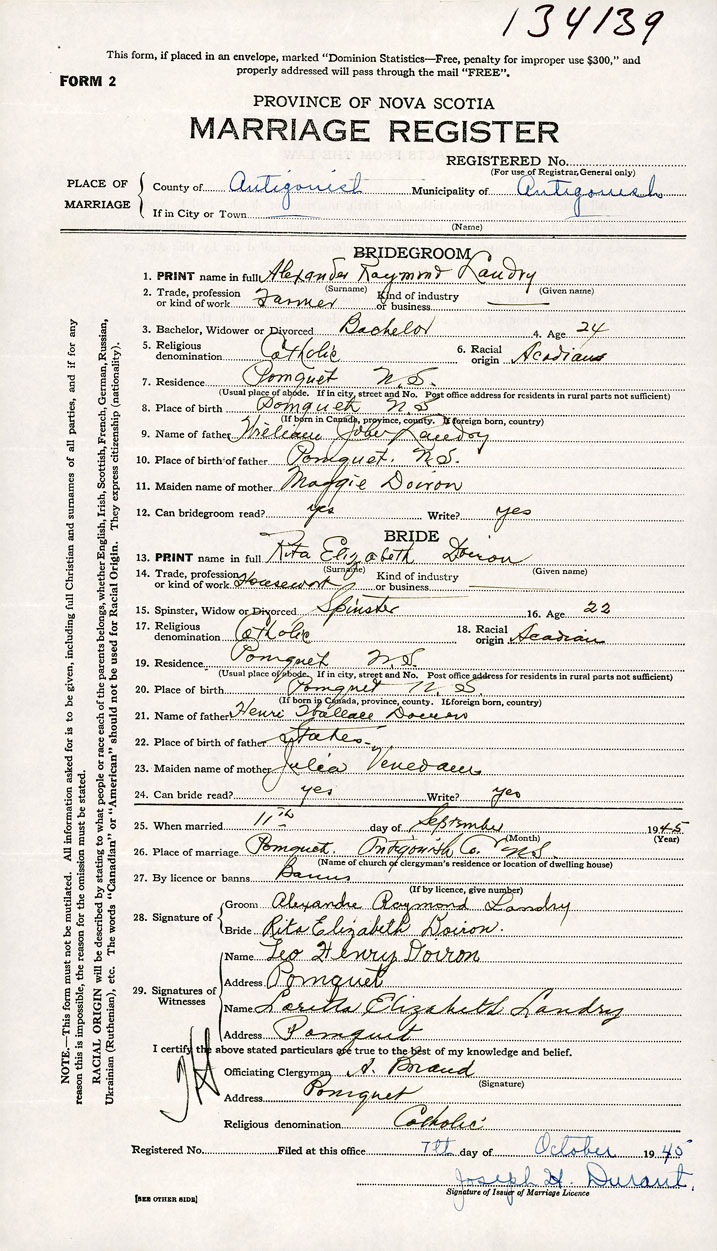 134139
This form, if placed in an envelope, marked "Dominion Statistics—Free, penalty for improper use $300," and
properly addressed will pass through the mail "FREE".
FORM 2
PROVINCE OF NOVA SCOTIA
MARRIAGE REGISTER
REGISTERED No.
(For use of Registrar General only)
PLACE OF MARRIAGE
County of Antigonish Municipality of Antigonish
If in City or Town
(Name)
BRIDEGROOM
1. PRINT name in full Alexander Raymond Landry
(Surname) (Given name)
2. Trade, profession or kind of work Farmer Kind of industry or business
3. Bachelor, Widower or Divorced Bachelor 4. Age 24
5. Religious denomination Catholic 6. Racial origin Acadian
7. Residence Pomquet N.S.
(Usual place of abode. If in city, street and No. Post office address for residents in rural parts not sufficient)
8. Place of birth Pomquet N S
(If born in Canada, province, county. If foreign born, country)
9. Name of father William John Landry
10. Place of birth of father Pomquet. N.S.
11. Maiden name of mother Maggie Doiron
12. Can bridegroom read? yes Write? yes
BRIDE
13. PRINT name in full Rita Elizabeth Doiron
(Surname) (Given name)
14. Trade, profession or kind of work Housework Kind of industry or business
15. Spinster, Widow or Divorced Spinster 16. Age 22
17. Religious denomination Catholic 18. Racial origin Acadian
19. Residence Pomquet N.S.
(Usual place of abode. If in city, street and No. Post office address for residents in rural parts not sufficient)
20. Place of birth Pomquet N. S.
(If born in Canada, province, county. If foreign born, country)
21. Name of father Henri Wallace Doiron
22. Place of birth of father States
23. Maiden name of mother Julia
24. Can bride read? yes Write? yes
25. When married 11th day of September 1945
(Month) (Year)
26. Place of marriage Pomquet, Antigonish Co. N.S.
(Name of church or clergyman's residence or location of dwelling house)
27. By licence or banns Banns
(If by licence, give number)
28. Signature of
Groom Alexandre Raymond Landry
Bride Rita Elizabeth Doiron.
29. Signatures of Witnesses
Name Leo Henry Doiron
Address Pomquet
Name Loretta Elizabeth Landry
Address Pomquet
I certify the above stated particulars are true to the best of my knowledge and belief.
Officiating Clergyman A.
(Signature)
Address Pomquet
Religious denomination Catholic
Registered No. Filed at this office 7th day of October 1945
Joseph H. Durant.
Signature of Issuer of Marriage Licence
[SEE OTHER SIDE]
NOTE.—This form must not be mutilated. All information asked for is to be given, including full Christian and surnames of all parties, and if for any
reason this is impossible, the reason for the omission must be stated.
RACIAL ORIGIN will be described by stating to what people or race each of the parents belongs, whether English, Irish, Scottish, French, German, Russian,
Ukrainian (Ruthenian), etc. The words "Canadian" or "American" should not be used for Racial Origin. They express citizenship (nationality).